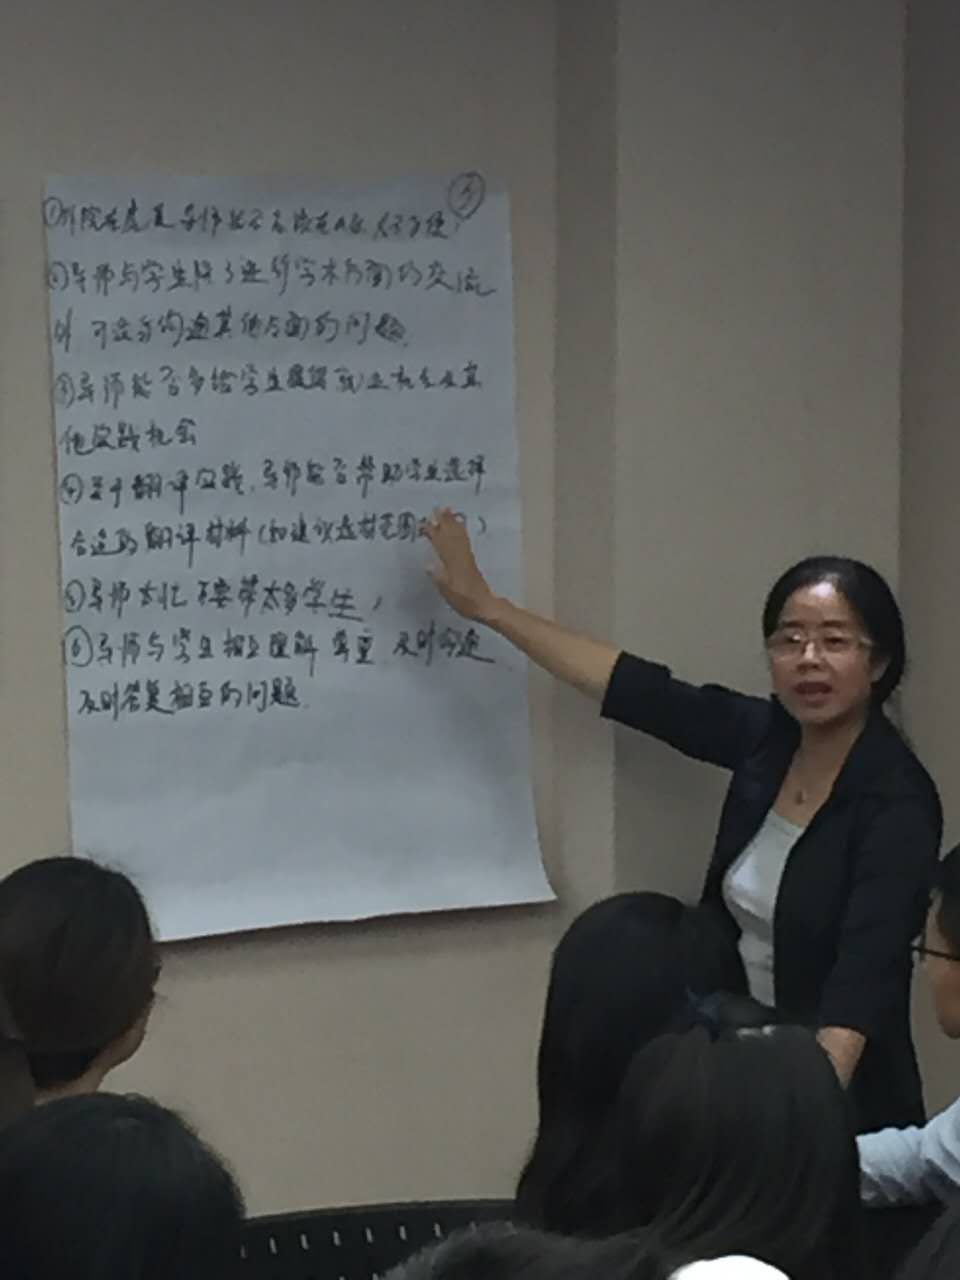 ⑤
①外院 导师能否
②导师与学生除了进行学术方面的交流
外 可否多沟通其他方面的问题.
③导师能否多给学生提供就业机会及其
他实践机会
④关于翻译实践, 导师能否帮助学生选择
合适的翻译材料(如建议选材范围
⑤导师太忙 不要带太多学生,
⑥导师与学生相互理解 尊重 及时沟通
及时答复相互的问题.